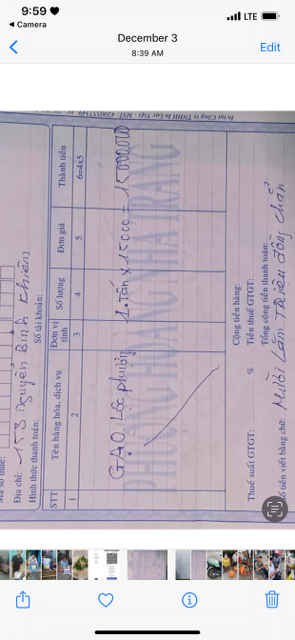 9:59
LTE
Camera
December 3
8:39 AM
Edit
In tại Công ty TNHH In Lạc Việt - MST: 4200357549
Mã số thuế:
Địa chỉ: 153 Nguyễn Bỉnh Khiêm
Hình thức thanh toán: Số tài khoản:
STT Tên hàng hóa, dịch vụ Đơn vị tính Số lượng Đơn giá Thành tiền
1 2 3 4 5 6=4x5
GẠO Lộc phượng 1.Tấn x 15000 = 15000.000
NHA TRANG
Cộng tiền hàng:
Thuế suất GTGT: % Tiền thuế GTGT:
Tổng cộng tiền thanh toán:
Số tiền viết bằng chữ: Mười Lăm Triệu đồng chẵn